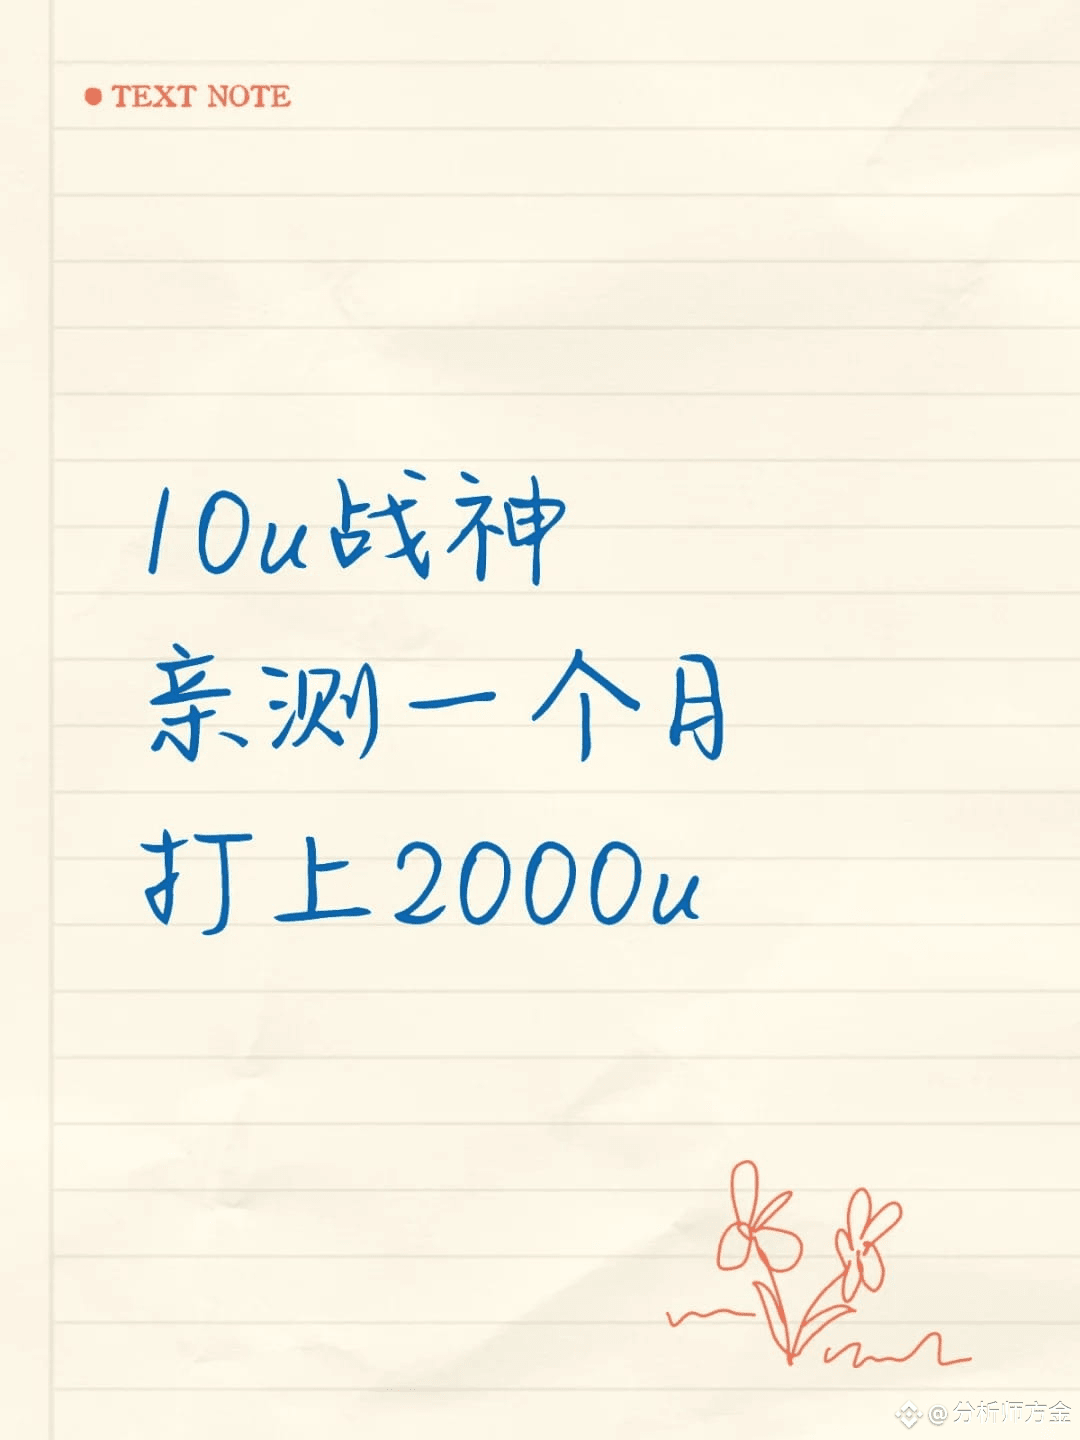 TEXT NOTE
10u战神
亲测一个月
打上2000u
@分析师方金